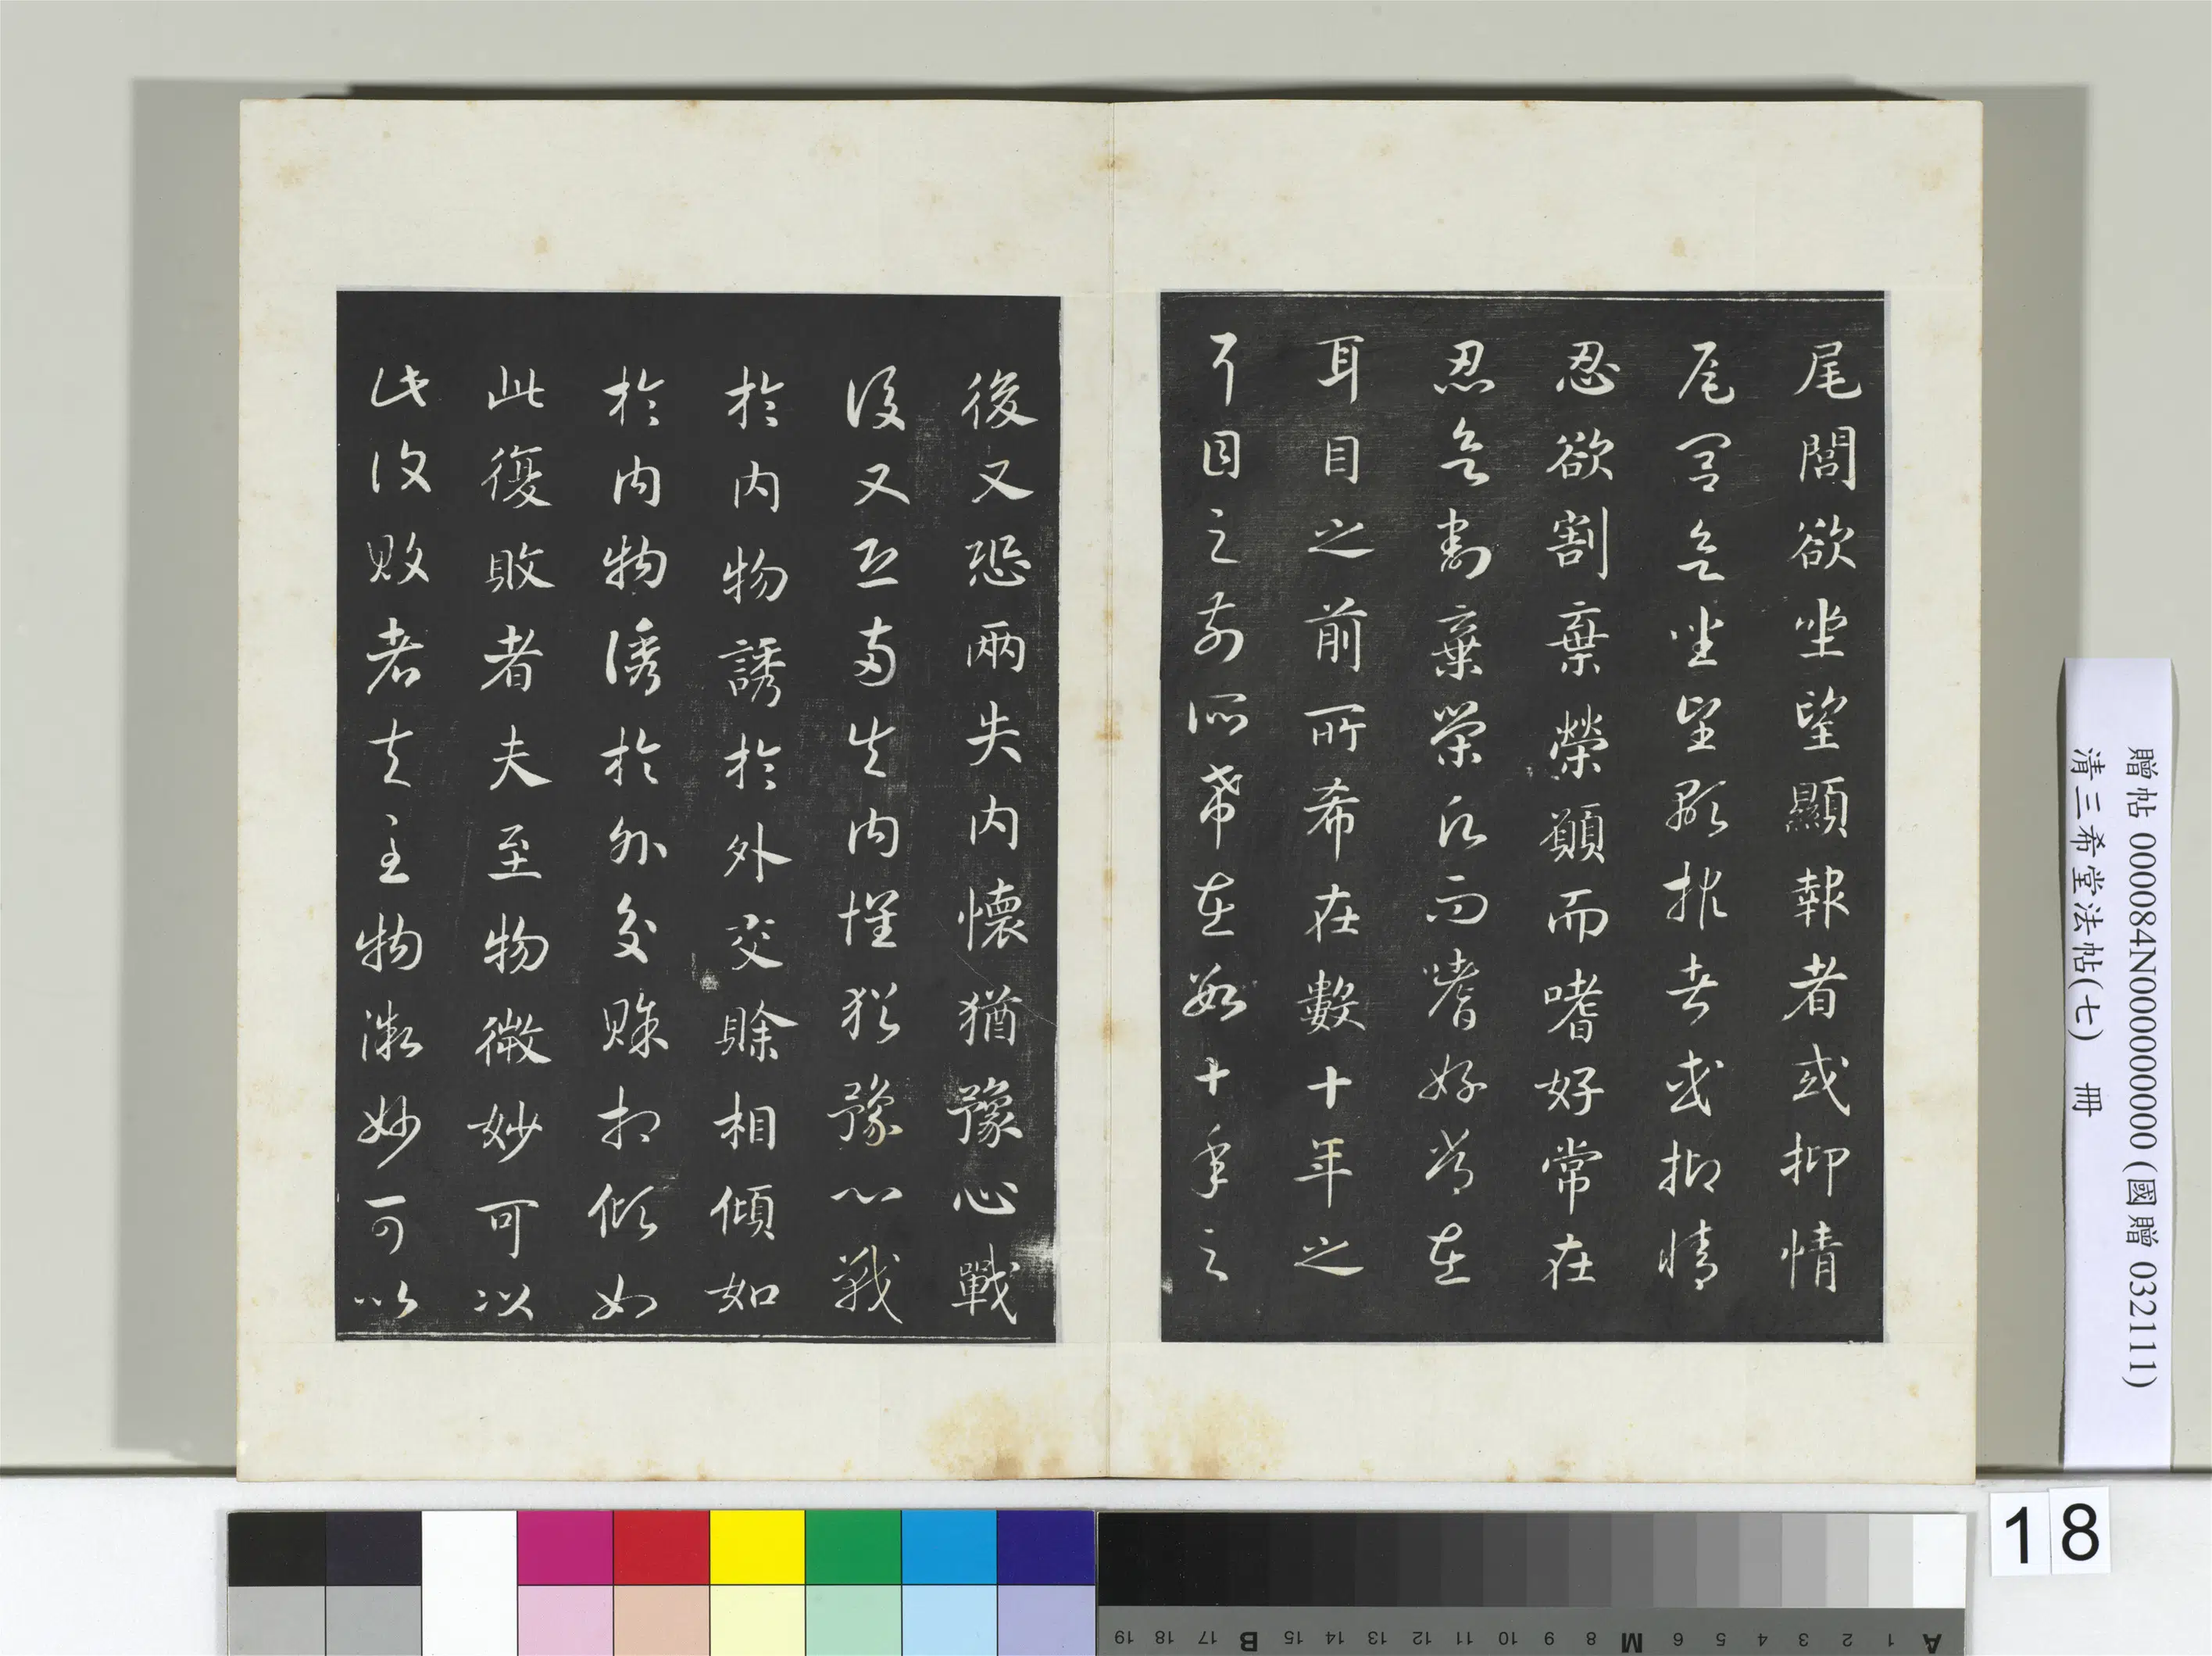 尾閭欲坐望顯報者或抑情
尾閭欲坐望顯報者或抑情
忍欲割棄榮願而嗜好常在
忍欲割棄榮願而嗜好常在
耳目之前所希在數十年之
耳目之前所希在數十年之
後又恐兩失內懷猶豫心戰
後又恐兩失內懷猶豫心戰
於內物誘於外交賒相傾如
於內物誘於外交賒相傾如
此復敗者夫至物微妙可以
此復敗者夫至物微妙可以
贈帖 000084N000000000 (國贈 032111)
清三希堂法帖(七) 冊
18
A 1 2 3 4 5 6 M 8 9 10 11 12 13 14 15 B 17 18 19